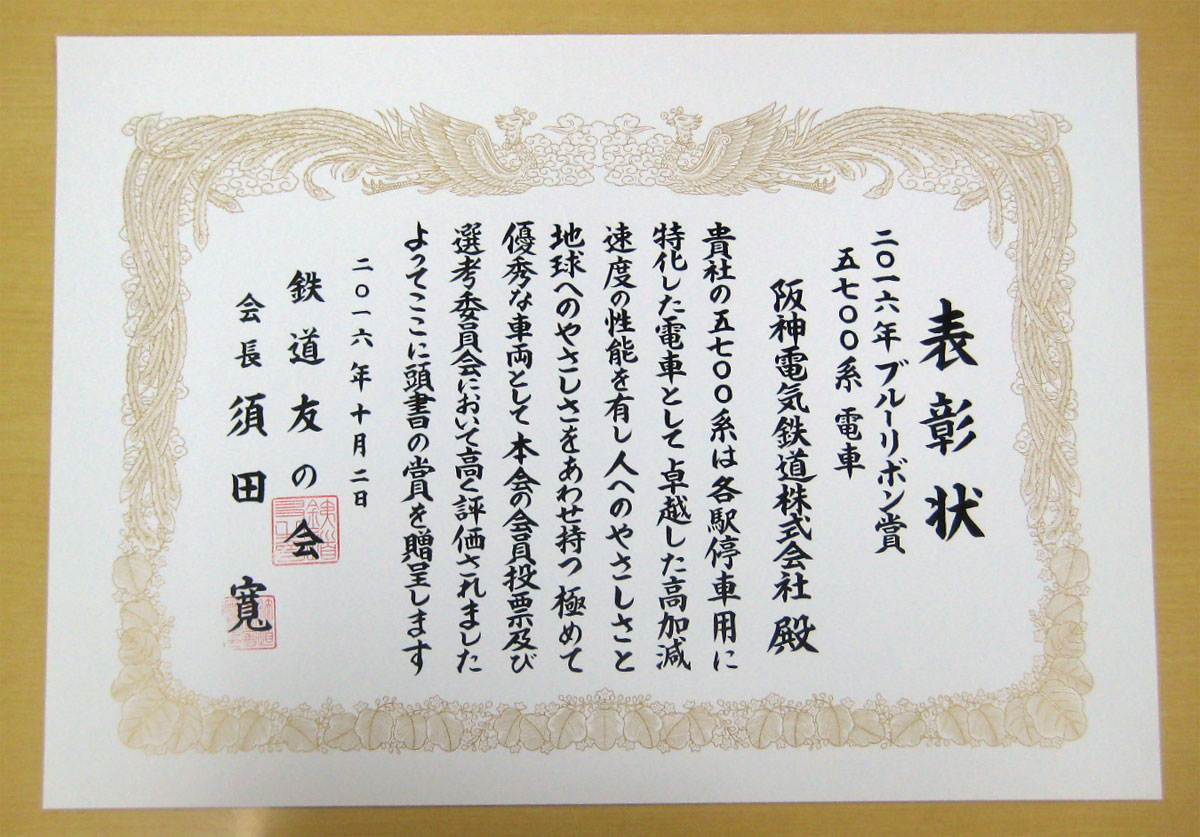 表彰状
二〇一六年ブルーリボン賞
五七〇〇系 電車
阪神電気鉄道株式会社 殿
貴社の五七〇〇系は各駅停車用に
特化した電車として卓越した高加減
速度の性能を有し人へのやさしさと
地球へのやさしさをあわせ持つ極めて
優秀な車両として本会の会員投票及び
選考委員会において高く評価されました
よってここに頭書の賞を贈呈します
二〇一六年十月二日
鉄道友の会
会長 須田 寬